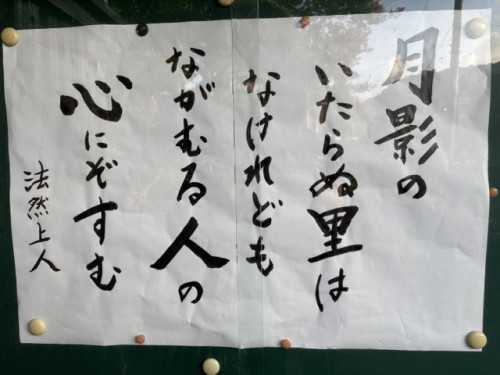 月影の
いたらぬ里は
なけれども
ながむる人の
心にぞすむ
法然上人